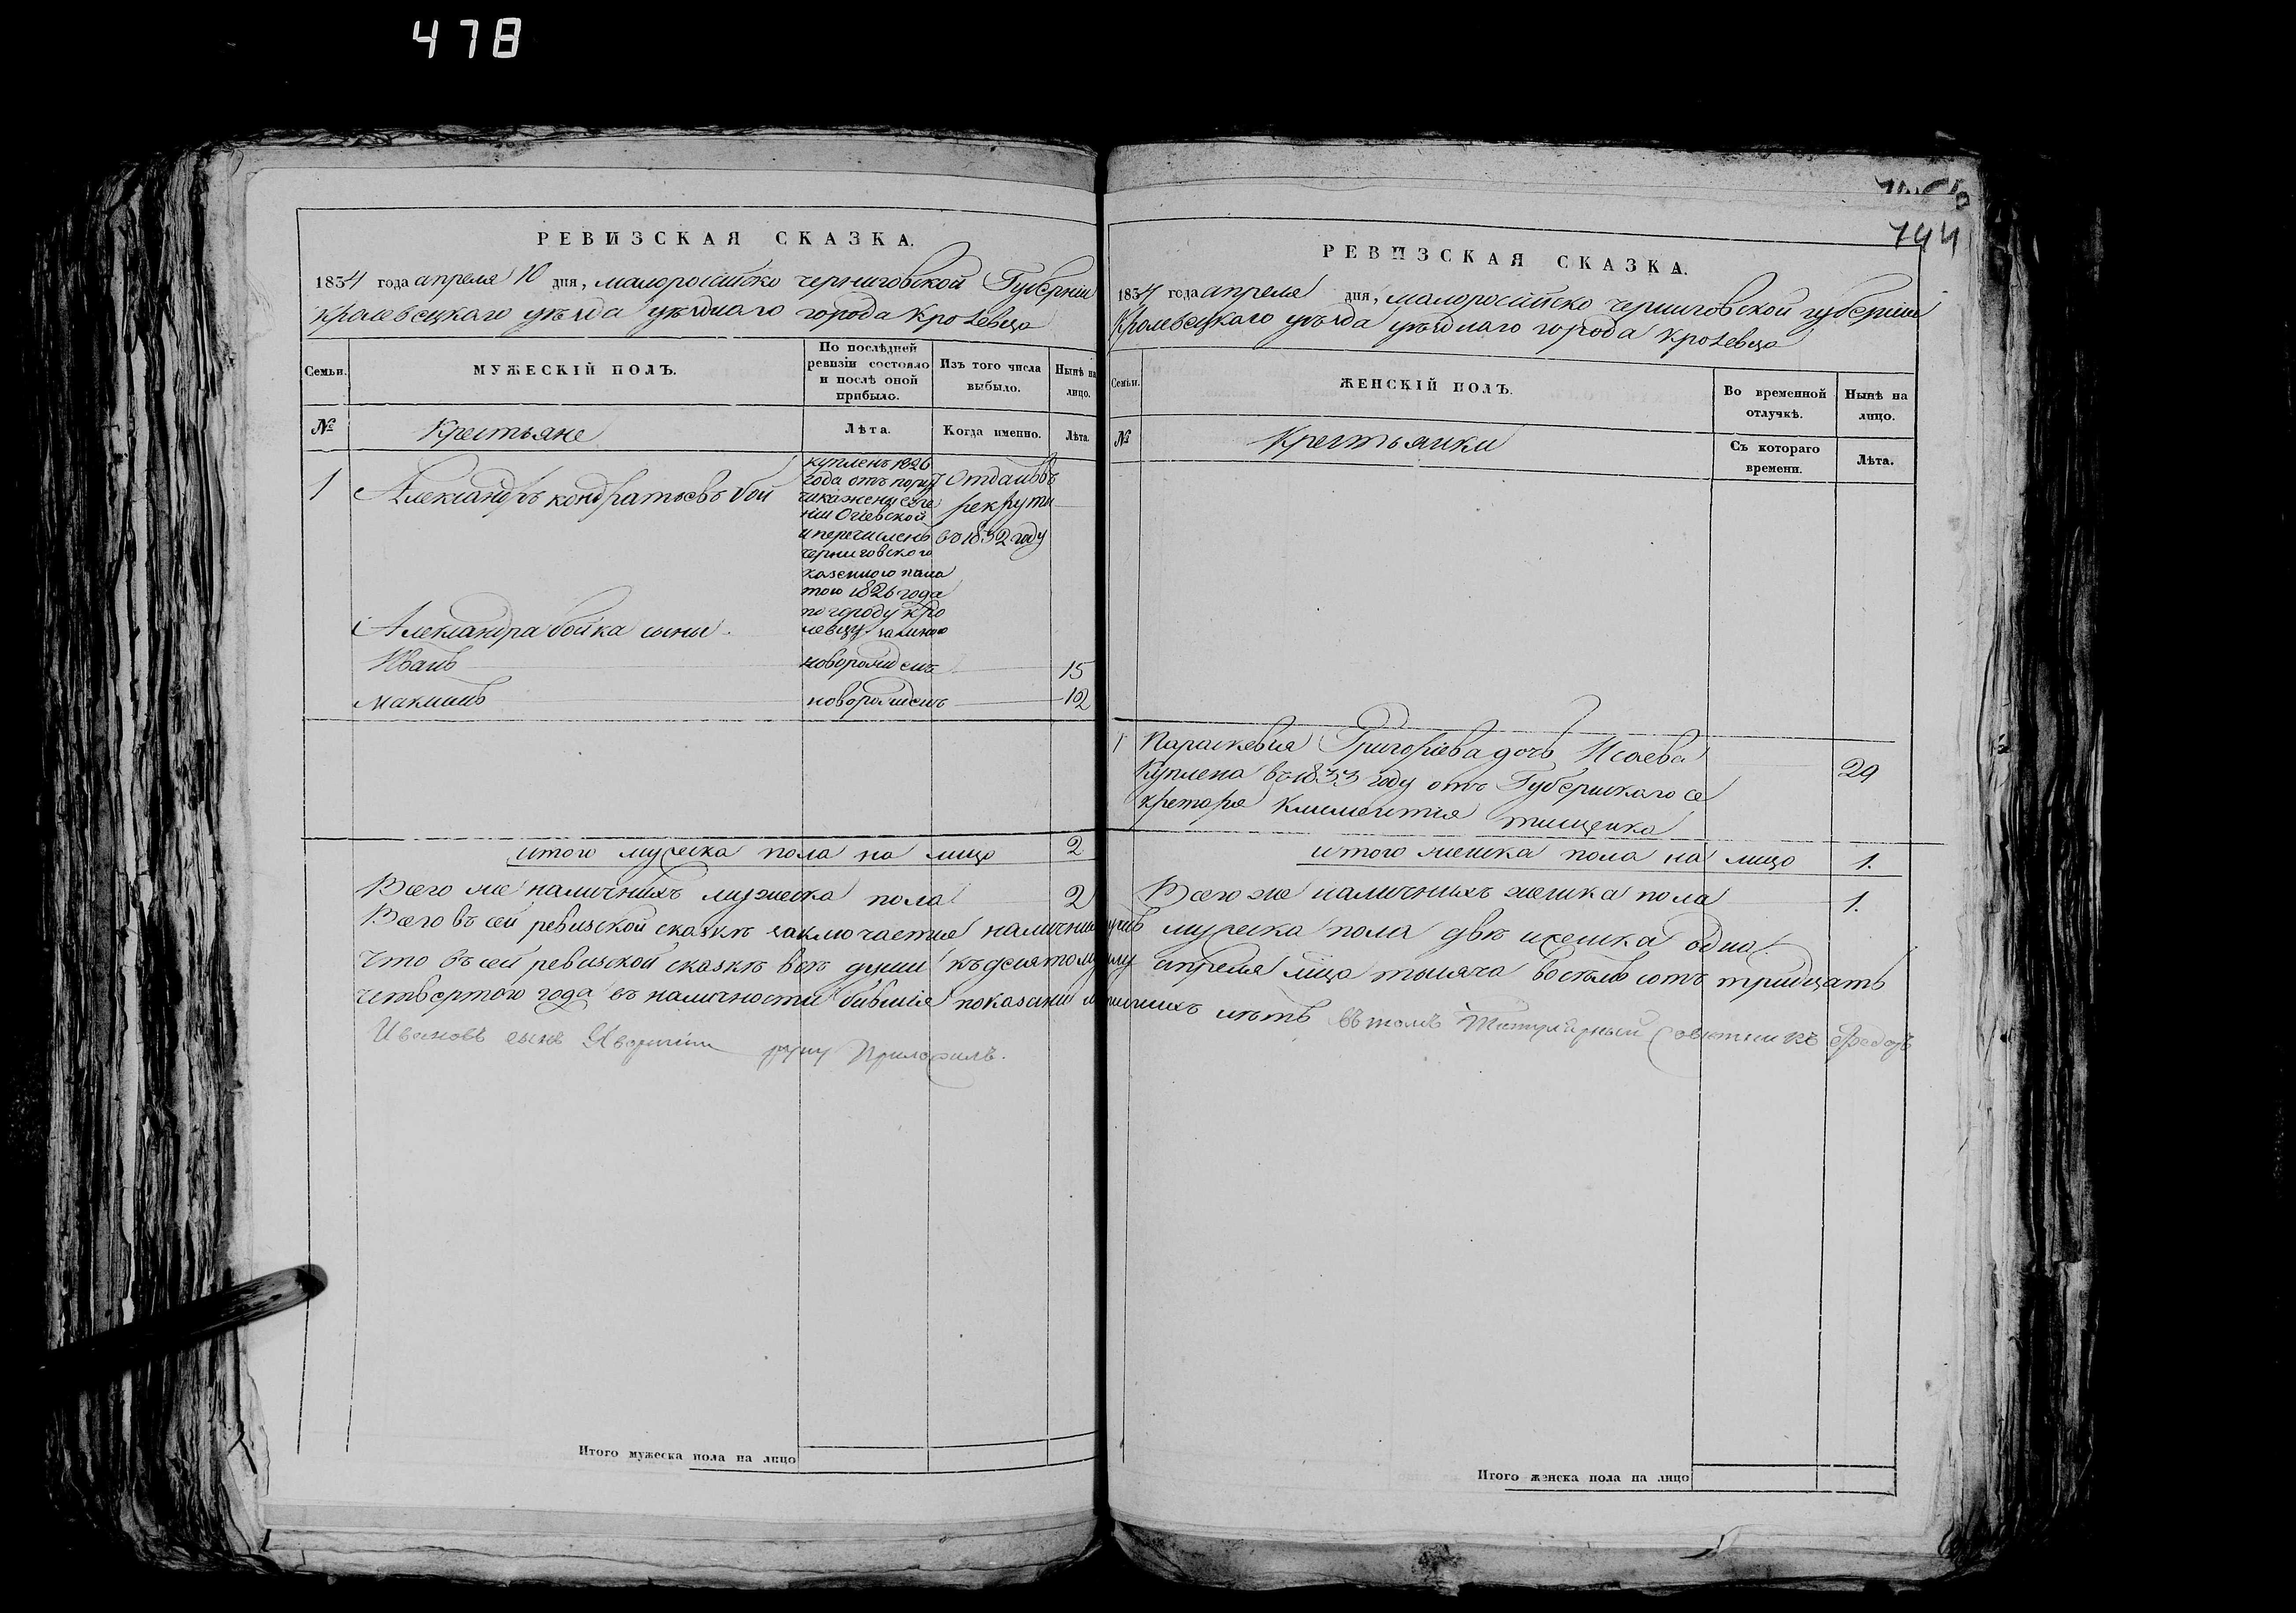 478
744
РЕВИЗСКАЯ СКАЗКА.
1834 года апреля 10 дня, малоросийско черниговской Губернии
Кролевецкаго уѣзда уѣзднаго города Кролевца
Семьи.
МУЖЕСКІЙ ПОЛЪ.
По послѣдней
ревизіи состояло
и послѣ оной
прибыло.
Изъ того числа
выбыло.
Нынѣ на
лицо.
№
Крестьяне
Лѣта.
Когда именно.
Лѣта.
1
Александръ кондратьевъ бой
купленъ 1826
года отъ пору
чика жены евге
нии Огіевской
и перечисленъ
черниговского
казенного пала
тою 1826 года
по городу Кро
левцу
Отданъ въ
рекруты
въ 1832 году
Александра бойка сыны
Иванъ новорожденъ 15
Максимъ новорожденъ 12
итого мужеска пола на лицо 2
Всего же наличныхъ мужеска пола 2
РЕВИЗСКАЯ СКАЗКА.
1834 года апреля дня, малоросийско черниговской губернии
Кролевецкаго уѣзда уѣзднаго города Кролевца
Семьи.
ЖЕНСКІЙ ПОЛЪ.
Во временной
отлучкѣ.
Нынѣ на
лицо.
№
Крестьянки
Съ котораго
времени.
Лѣта.
1 Параскевия Григоріева дочь Исаева
Куплена въ 1833 году отъ Губернскаго се
кретаря Климентия тищенка
29
итого женска пола на лицо 1.
Всего же наличныхъ женска пола 1.
Всего въ сей ревизской сказкѣ заключается наличных душъ мужеска пола двѣ и женска одна.
Что въ сей ревизской сказкѣ всѣ души къ десятому числу апреля мца тысяча восемь сотъ тридцать
четвертого года въ наличности бывшія показаны и прописныхъ нѣтъ въ томъ Титулярный Советникъ Федоръ
Ивановъ сынъ руку Приложилъ.
Итого мужеска пола на лицо
Итого женска пола на лицо